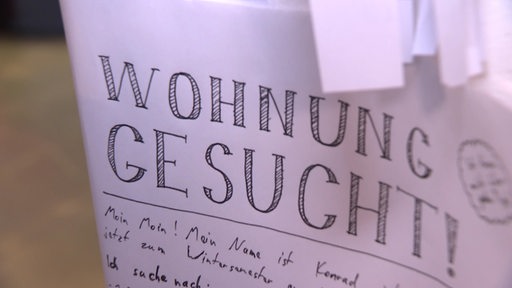 WOHNUNG
GESUCHT!
Moin Moin! Mein Name ist Konrad
jetzt zum Wintersemester
Ich suche nach